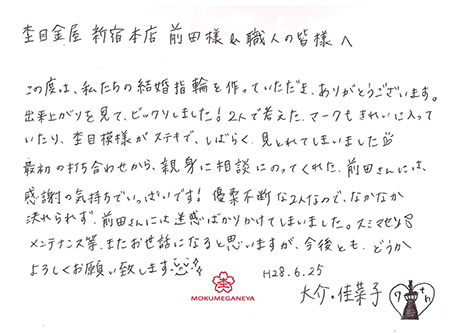 杢目金屋 新宿本店 前田様&職人の皆様へ
この度は、私たちの結婚指輪を作っていただき、ありがとうございます。
出来上がりを見て、ビックリしました!2人で考えた、マークもきれいに入って
いたり、杢目模様がステキで、しばらく、見とれてしまいました
最初の打ち合わせから、親身に相談にのってくれた、前田さんには、
感謝の気持ちでいっぱいです!優柔不断な2人なので、なかなか
決められず、前田さんには迷惑ばかりかけてしまいました。スミマセン
メンテナンス等、またお世話になると思いますが、今後とも、どうか
よろしくお願い致します
H28.6.25
MOKUMEGANEYA
大介・佳菜子